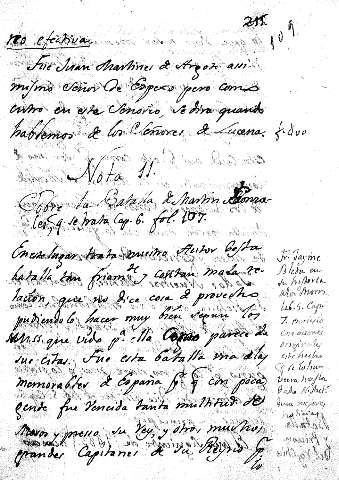 211
109
reo efectiva.
Fue Juan Martines de Argote assi
mismo Señor de Espexo pero como
entro en este Senorio, se dira quando
hablemos de los Señores de Lucena.
Nota 11.
Sobre la Batalla de Martin Gonza
les, q se trata Cap. 6. fol 107.
En este lugar trata nuestro Autor esta
batalla tan friamte y con tan mala re
lacion, que no dice cosa de provecho
pudiendolo hacer muy bien segun los
M.SS. que vido pr ella como parece de
sus citas. Fue esta batalla una de las
memorables de España pr q con poca
gente fue vencida tanta multitud de
Moros, y presso su Rey, y otros muchos
grandes Capitanes de su Reyno pr
lo
Fr. Jayme
Bleda en
su historia
de los Moros
lib. 5. Cap.
7.
este hecho